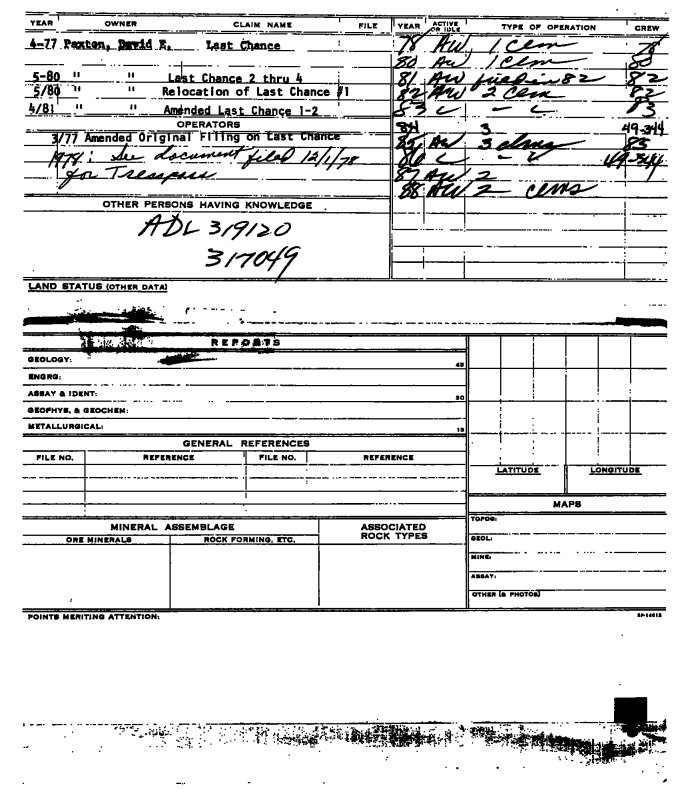 YEAR OWNER CLAIM NAME FILE
4-77 Paxton, David E. Last Chance
5-80 " " Last Chance 2 thru 4
5/80 " " Relocation of Last Chance #1
4/81 " " Amended Last Chance 1-2
OPERATORS
3/77 Amended Original Filing on Last Chance
1978: See document filed 12/1/78
for Tresspass
OTHER PERSONS HAVING KNOWLEDGE
ADL 319120
317049
YEAR ACTIVE OR IDLE TYPE OF OPERATION CREW
78 AW 1 clm 78
80 AW 1 clm 80
81 AW filed in 82 82
82 AW 2 clm 82
83 " - " 83
84 3 49-344
85 AW 3 clms 85
86 " - "
87 AW 2
88 AW 2 clms
LAND STATUS (OTHER DATA)
REPORTS
GEOLOGY: 45
ENGRG:
ASSAY & IDENT: 30
GEOPHYS. & GEOCHEM:
METALLURGICAL: 15
GENERAL REFERENCES
FILE NO. REFERENCE FILE NO. REFERENCE
LATITUDE LONGITUDE
MAPS
TOPOG:
GEOL:
MINE:
ASSAY:
OTHER (& PHOTOS)
MINERAL ASSEMBLAGE
ORE MINERALS ROCK FORMING, ETC.
ASSOCIATED ROCK TYPES
POINTS MERITING ATTENTION: